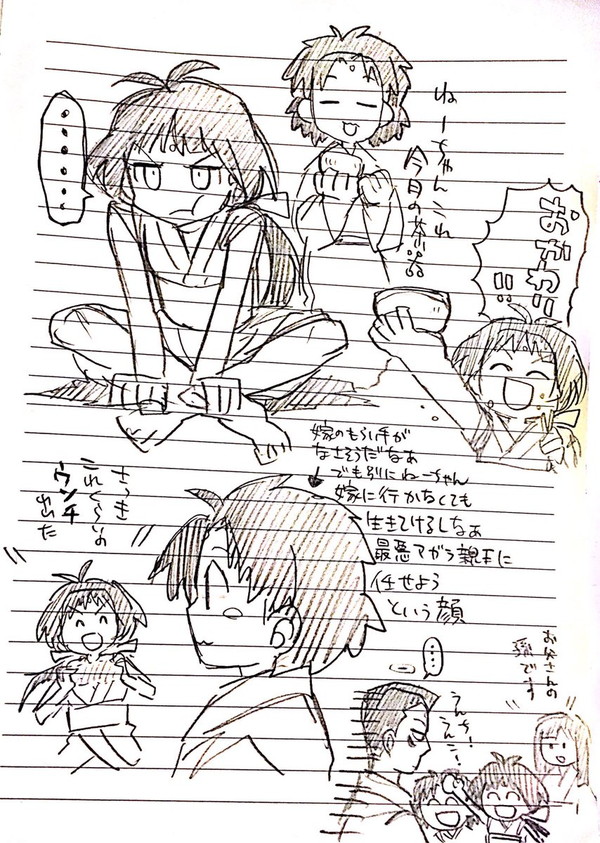 ‥‥‥
ねーちゃんこれ
今月の茶器
おかわり!!
嫁のもらい手が
なさそうだなぁ
でも別にねーちゃん
嫁に行かなくても
生きてけるしなぁ
最悪てがう親王に
任せよう
という顔
さっき
これくらいの
ウンチ
出た
‥‥
お父さんの
孫です
うんち!
うんこ!